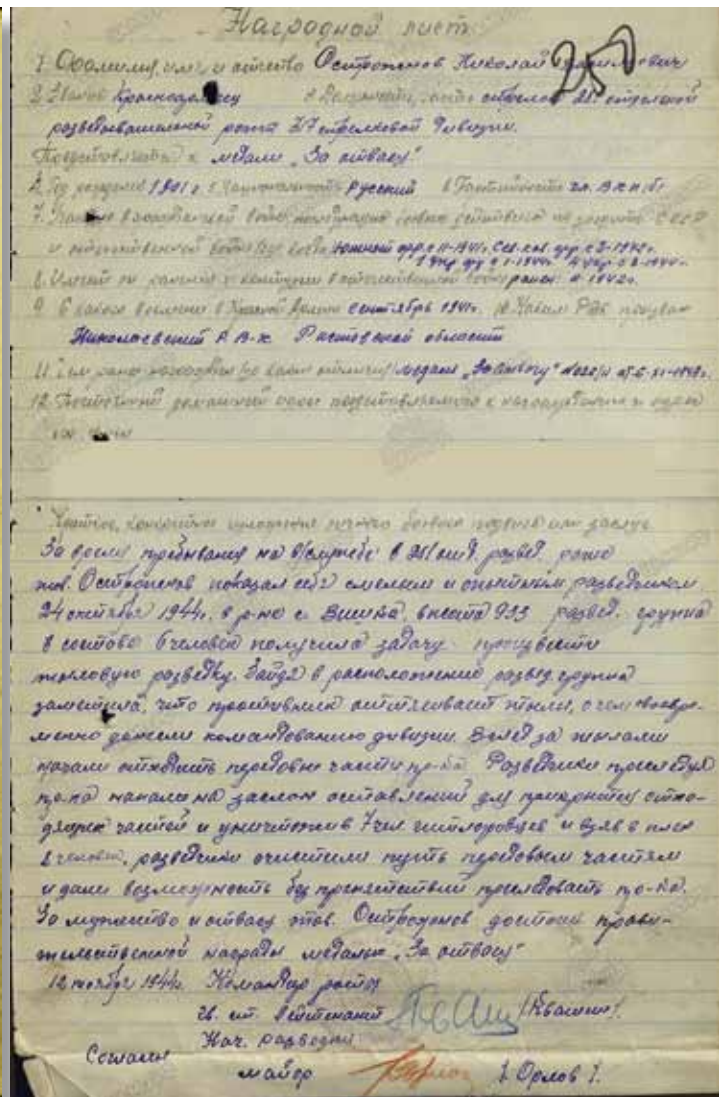 Наградной лист
250
1. Фамилия, имя и отчество Остроженов Николай
2. Звание Красноармеец 3. Должность, часть стрелок 28 отдельной
разведывательной роты 37 стрелковой дивизии.
Представляется к медали „За отвагу“
4. Год рождения 1901 г. 5. Национальность русский 6. Партийность чл. ВКП(б)
7. Участие в гражданской войне, последующих боевых действиях по защите СССР
и отечественной войне (где, когда) Южный фр. с 11-1941г. Сев. кав. фр. с 2-1942г.
1 Укр. фр. с 1-1944г. 4 Укр. с 8-1944г.
8. Имеет ли ранения и контузии в отечественной войне ранен: 1942г.
9. С какого времени в Красной Армии сентябрь 1941г. 10. Каким РВК призван
Николаевский РВК Ростовской области
11. Чем ранее награжден (за какие отличия) медаль „За отвагу“ от 6-XI-1942г.
12. Постоянный домашний адрес представляемого к награждению и адрес
его семьи
Краткое, конкретное изложение личного боевого подвига или заслуг
За время пребывания на в/службе в развед. роте
тов. Остроженов показал себя смелым и опытным разведчиком.
24 октября 1944г. в р-не с. Вишка, высота 933 развед. группа
в составе 6 человек получила задачу произвести
тыловую разведку. Зайдя в расположение развед. группа
заметила, что противник оттягивает тылы, о чем своевре-
менно донесли командованию дивизии. Вслед за тылами
начали отходить передовые части пр-ка. Разведчики преследуя
пр-ка напали на заслон оставленный для прикрытия отхо-
дящих частей и уничтожив 7 чел. гитлеровцев и взяв в плен
2 человек, разведчики очистили путь передовым частям
и дали возможность без препятствий преследовать пр-ка.
За мужество и отвагу тов. Остроженов достоин прави-
тельственной награды медалью „За отвагу“
12 ноября 1944г. Командир роты
гв. ст. лейтенант /Квашин/.
Согласен Нач. разведки
майор / Орлов /.